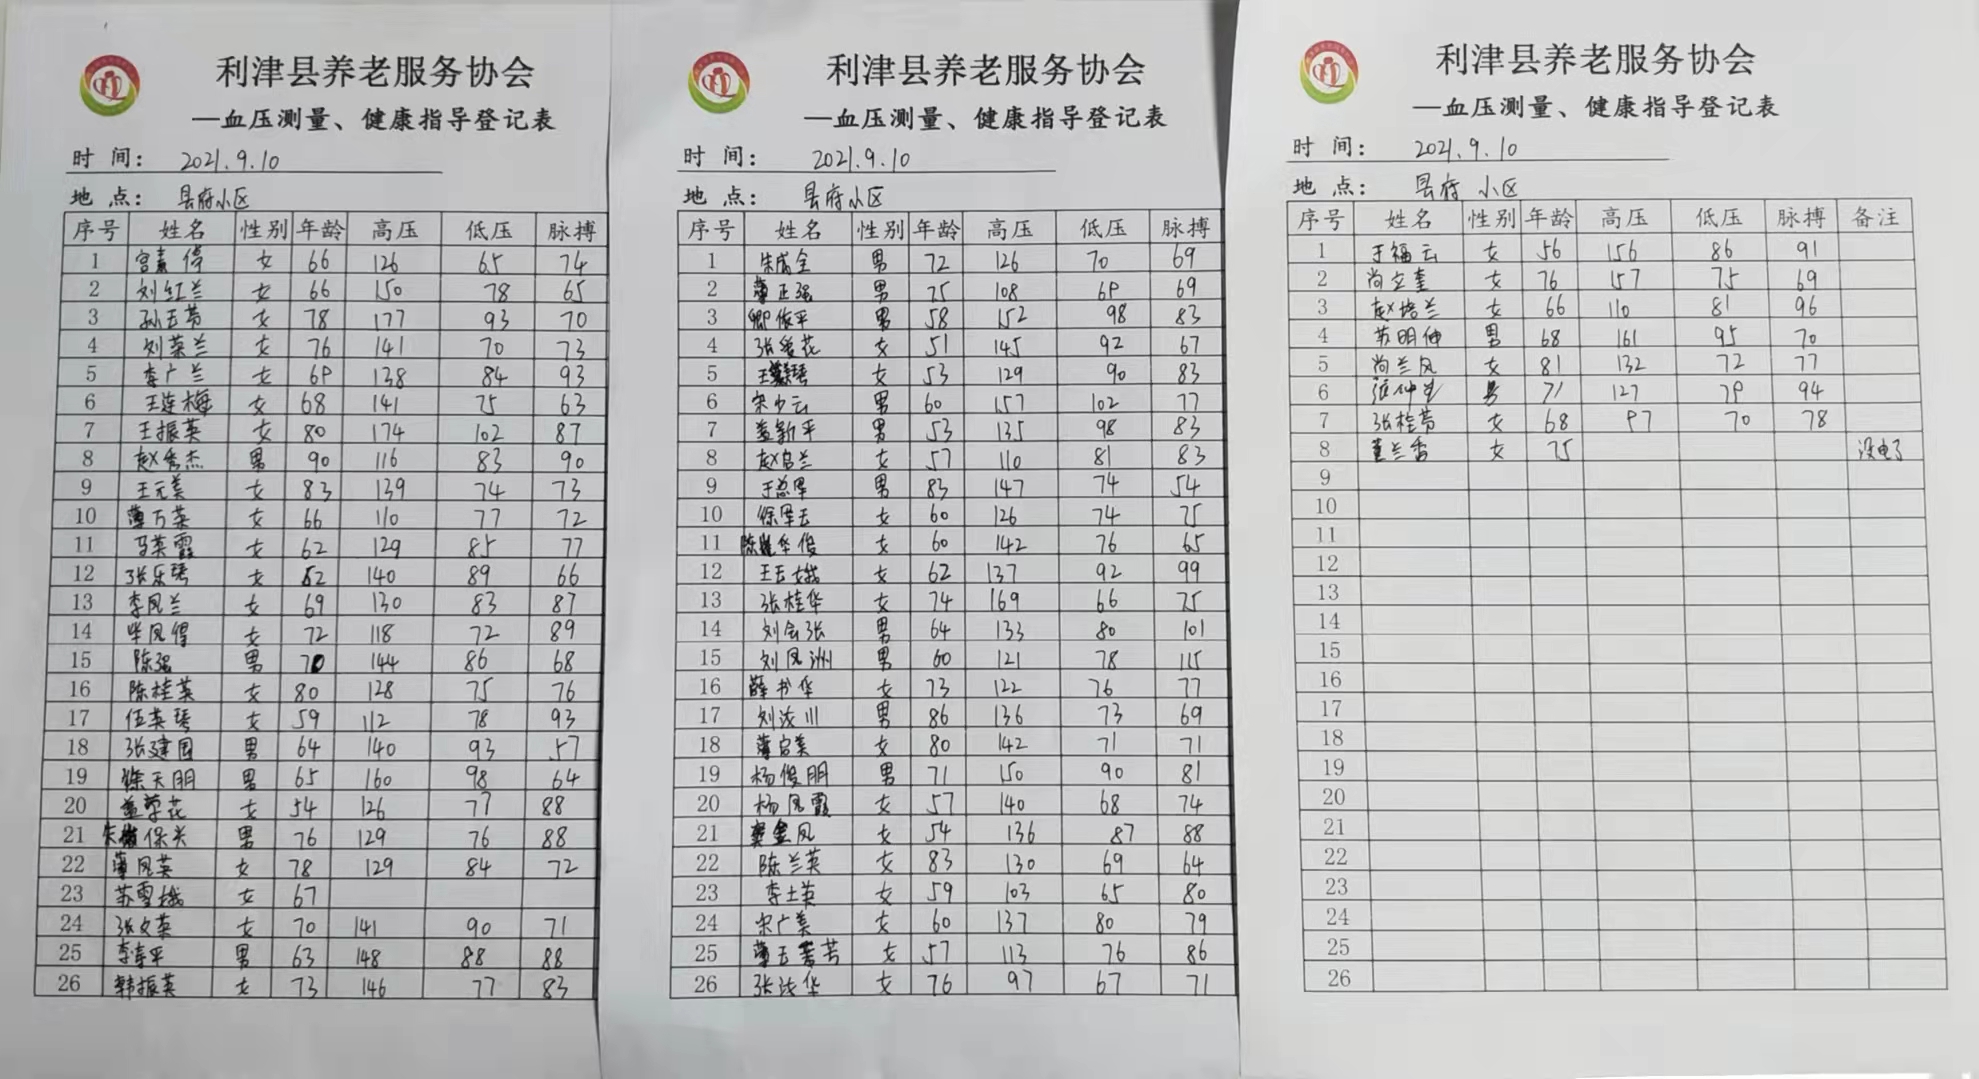 利津县养老服务协会
—血压测量、健康指导登记表
时 间： 2021.9.10
地 点： 县府小区
序号 姓名 性别 年龄 高压 低压 脉搏
1 女 66 126 65 74
2 刘红兰 女 66 150 78 65
3 孙玉芳 女 78 177 93 70
4 刘荣兰 女 76 141 70 73
5 李广兰 女 69 138 84 93
6 王连梅 女 68 141 75 63
7 王振英 女 80 174 102 87
8 赵秀杰 男 90 116 83 90
9 王元美 女 83 139 74 73
10 薄万英 女 66 110 77 72
11 马英霞 女 62 129 85 77
12 张乐琴 女 62 140 89 66
13 李凤兰 女 69 130 83 87
14 女 72 118 72 89
15 陈强 男 70 144 86 68
16 陈桂英 女 80 128 75 76
17 伍英琴 女 59 112 78 93
18 张建国 男 64 140 93 57
19 徐天朋 男 65 160 98 64
20 盖翠花 女 54 126 77 88
21 男 76 129 76 88
22 薄凤英 女 78 129 84 72
23 苏雪娥 女 67
24 张文英 女 70 141 90 71
25 李寿平 男 63 148 88 88
26 韩振英 女 73 146 77 83
利津县养老服务协会
—血压测量、健康指导登记表
时 间： 2021.9.10
地 点： 县府小区
序号 姓名 性别 年龄 高压 低压 脉搏
1 朱成全 男 72 126 70 69
2 薄正强 男 75 108 69 69
3 男 58 152 98 83
4 张爱花 女 51 145 92 67
5 女 53 129 90 83
6 宋少云 男 60 157 102 77
7 盖新平 男 53 135 98 83
8 女 57 110 81 83
9 男 83 147 74 54
10 女 60 126 74 75
11 女 60 142 76 65
12 王玉娥 女 62 137 92 99
13 张桂华 女 74 169 66 75
14 刘会张 男 64 133 80 101
15 刘凤洲 男 60 121 78 115
16 薛书华 女 73 122 76 77
17 男 86 136 73 69
18 女 80 142 71 71
19 杨俊朋 男 71 150 90 81
20 杨凤霞 女 57 140 68 74
21 女 54 136 87 88
22 陈兰英 女 83 130 69 64
23 李士英 女 59 103 65 80
24 宋广美 女 60 137 80 79
25 女 57 113 76 86
26 女 76 97 67 71
利津县养老服务协会
—血压测量、健康指导登记表
时 间： 2021.9.10
地 点： 县府 小区
序号 姓名 性别 年龄 高压 低压 脉搏 备注
1 于福云 女 56 156 86 91
2 尚立奎 女 76 157 75 69
3 赵培兰 女 66 110 81 96
4 苏明伸 男 68 161 95 70
5 尚兰凤 女 81 132 72 77
6 男 71 127 79 94
7 张桂芳 女 68 97 70 78
8 董兰香 女 75 没电了
9
10
11
12
13
14
15
16
17
18
19
20
21
22
23
24
25
26